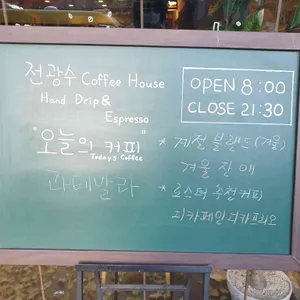 전광수 Coffee House
Hand Drip &
Espresso
"오늘의 커피"
Today's Coffee
과테말라
OPEN 8:00
CLOSE 21:30
* 계절 블랜드(겨울)
겨울 잔애
* 로스터 추천커피
디카페인